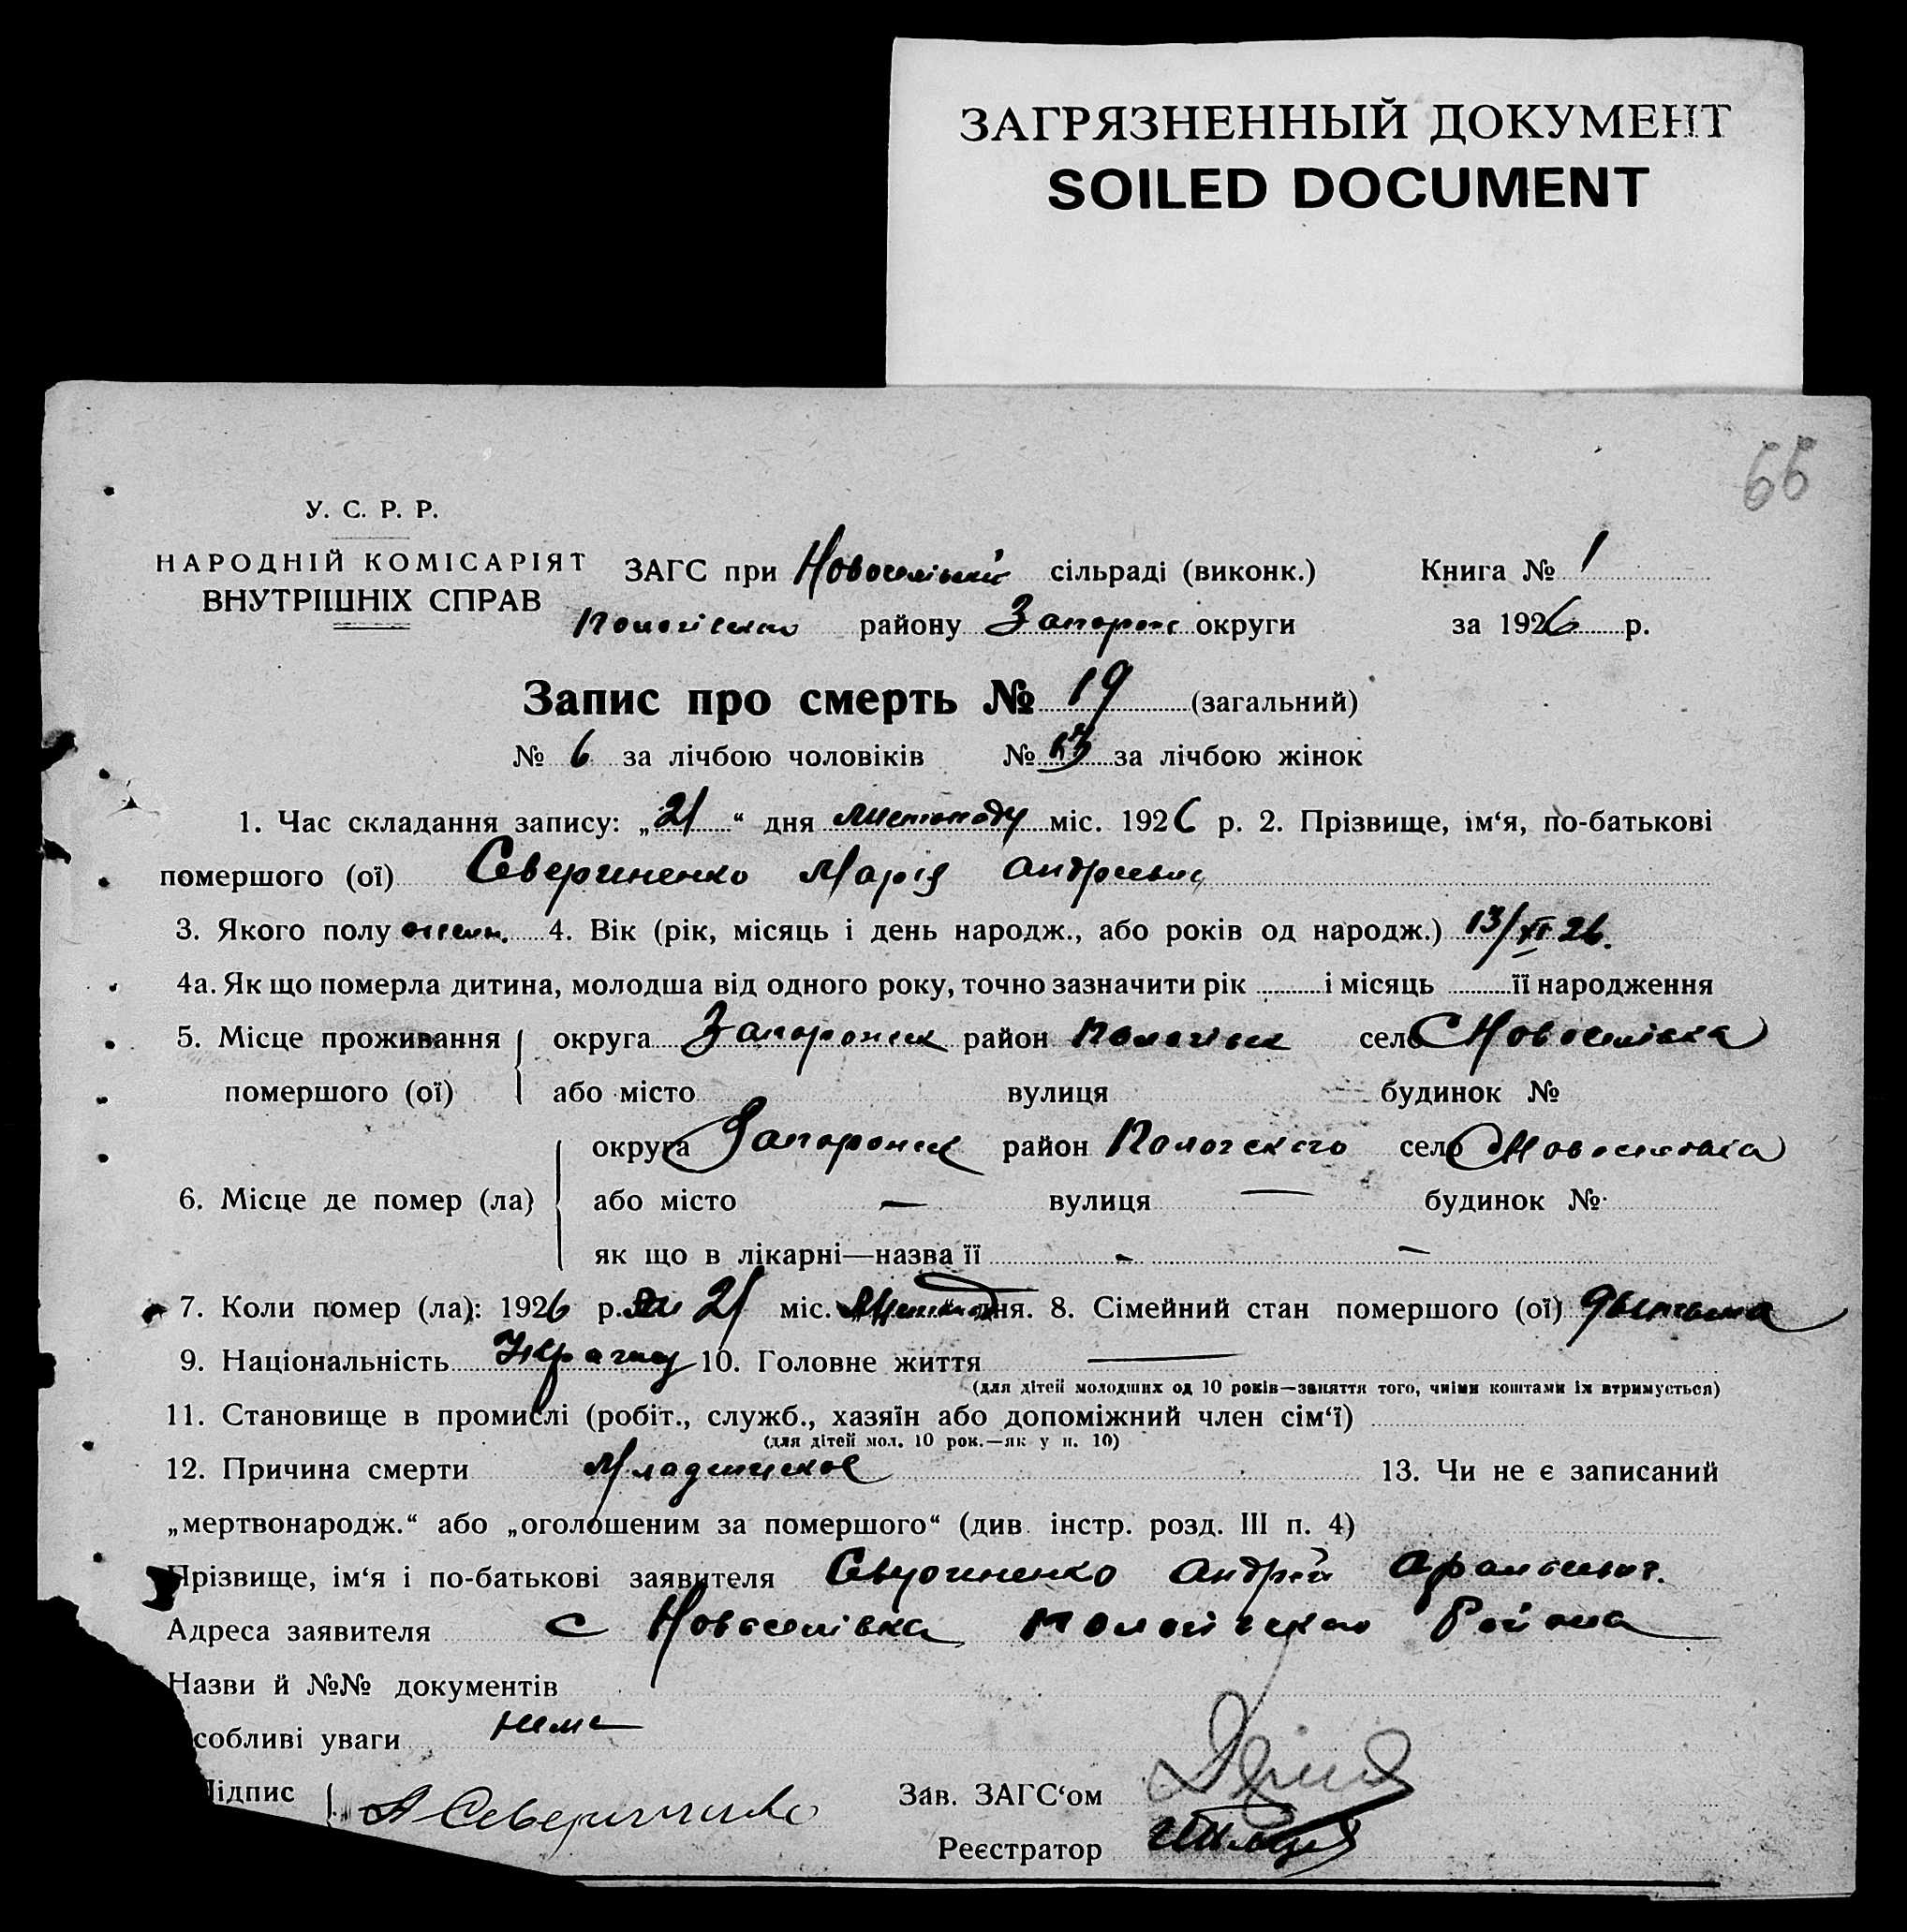 ЗАГРЯЗНЕННЫЙ ДОКУМЕНТ
SOILED DOCUMENT
66
У. С. Р. Р.
НАРОДНІЙ КОМІСАРІЯТ
ВНУТРІШНІХ СПРАВ
ЗАГС при Новоселівській сільраді (виконк.) Книга № 1
району Запорож округи за 1926 р.
Запис про смерть № 19 (загальний)
№ 6 за лічбою чоловіків № 13 за лічбою жінок
1. Час складання запису: „21“ дня листопаду міс. 1926 р. 2. Прізвище, ім‘я, по-батькові
помершого (ої) Севериненко Марія Андріевна
3. Якого полу жен. 4. Вік (рік, місяць і день народж., або років од народж.) 13/XI 26.
4а. Як що померла дитина, молодша від одного року, точно зазначити рік і місяць її народження
5. Місце проживання округа Запорожск район Пологівск село Новоселівка
помершого (ої) або місто вулиця будинок №
округа Запорожск район Пологского село Новоселовка
6. Місце де помер (ла) або місто — вулиця — будинок №
як що в лікарні—назва її - —
7. Коли помер (ла): 1926 р. 21 міс. дня. 8. Сімейний стан помершого (ої)
9. Національність 10. Головне життя —
(для дітей молодших од 10 років—заняття того, чиїми коштами їх втримується)
11. Становище в промислі (робіт., служб., хазяїн або допоміжний член сім‘ї)
(для дітей мол. 10 рок.—як у п. 10)
12. Причина смерти Младенческое 13. Чи не є записаний
„мертвонародж.“ або „оголошеним за помершого“ (див. інстр. розд. III п. 4)
Прізвище, ім‘я і по-батькові заявителя Севериненко Андрій
Адреса заявителя с Новоселівка Района
Назви й №№ документів
собливі уваги нема
Підпис А Севериненко Зав. ЗАГС‘ом
Реєстратор